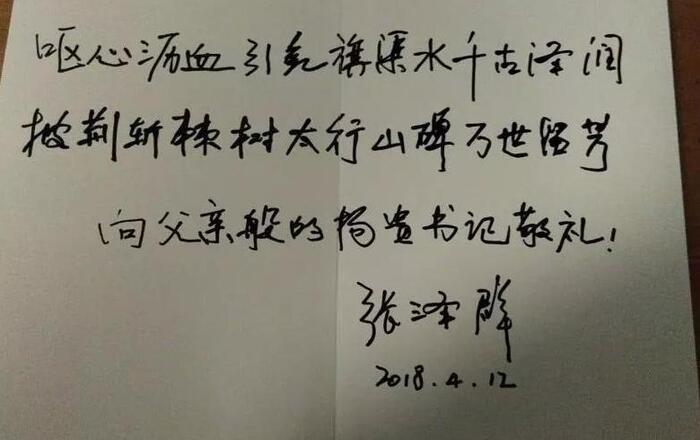 呕心沥血引红旗渠水千古泽润
披荆斩棘树太行山碑万世留芳
向父亲般的杨贵书记敬礼!
张泽群
2018.4.12